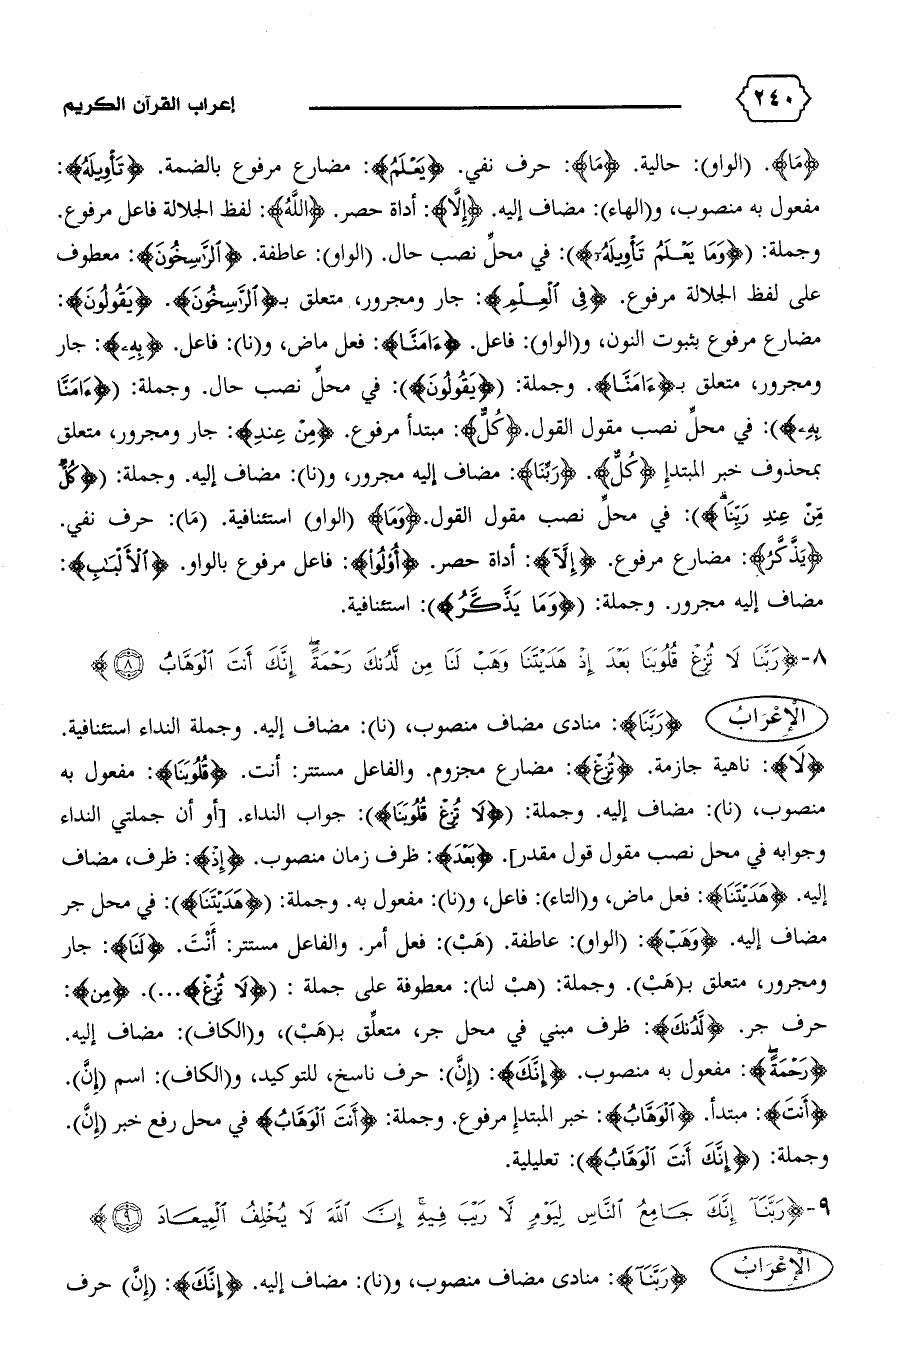 ٢٤٠ إعراب القرآن الكريم
﴿مَا﴾. (الواو): حالية. ﴿مَا﴾: حرف نفي. ﴿يَعْلَمُ﴾: مضارع مرفوع بالضمة. ﴿تَأْوِيلَهُ﴾:
مفعول به منصوب، و(الهاء): مضاف إليه. ﴿إِلَّا﴾: أداة حصر. ﴿اللَّهُ﴾: لفظ الجلالة فاعل مرفوع.
وجملة: (﴿وَمَا يَعْلَمُ تَأْوِيلَهُۥ﴾): في محلِّ نصب حال. (الواو): عاطفة. ﴿ٱلرَّٰسِخُونَ﴾: معطوف
على لفظ الجلالة مرفوع. ﴿فِى ٱلْعِلْمِ﴾: جار ومجرور، متعلق بـ﴿ٱلرَّٰسِخُونَ﴾. ﴿يَقُولُونَ﴾:
مضارع مرفوع بثبوت النون، و(الواو): فاعل. ﴿ءَامَنَّا﴾: فعل ماض، و(نا): فاعل. ﴿بِهِۦ﴾: جار
ومجرور، متعلق بـ﴿ءَامَنَّا﴾. وجملة: (﴿يَقُولُونَ﴾): في محلِّ نصب حال. وجملة: (﴿ءَامَنَّا
بِهِۦ﴾): في محلِّ نصب مقول القول. ﴿كُلٌّ﴾: مبتدأ مرفوع. ﴿مِّنْ عِندِ﴾: جار ومجرور، متعلق
بمحذوف خبر المبتدإ ﴿كُلٌّ﴾. ﴿رَبِّنَا﴾: مضاف إليه مجرور، و(نا): مضاف إليه. وجملة: (﴿كُلٌّ
مِّنْ عِندِ رَبِّنَاۗ﴾): في محلِّ نصب مقول القول. ﴿وَمَا﴾ (الواو) استئنافية. (مَا): حرف نفي.
﴿يَذَّكَّرُ﴾: مضارع مرفوع. ﴿إِلَّآ﴾: أداة حصر. ﴿أُوْلُواْ﴾: فاعل مرفوع بالواو. ﴿ٱلْأَلْبَٰبِ﴾:
مضاف إليه مجرور. وجملة: (﴿وَمَا يَذَّكَّرُ﴾): استئنافية.
٨-﴿رَبَّنَا لَا تُزِغْ قُلُوبَنَا بَعْدَ إِذْ هَدَيْتَنَا وَهَبْ لَنَا مِن لَّدُنكَ رَحْمَةًۖ إِنَّكَ أَنتَ ٱلْوَهَّابُ ٨﴾
الْإِعْرَابُ ﴿رَبَّنَا﴾: منادى مضاف منصوب، (نا): مضاف إليه. وجملة النداء استئنافية.
﴿لَا﴾: ناهية جازمة. ﴿تُزِغْ﴾: مضارع مجزوم. والفاعل مستتر: أنت. ﴿قُلُوبَنَا﴾: مفعول به
منصوب، (نا): مضاف إليه. وجملة: (﴿لَا تُزِغْ قُلُوبَنَا﴾): جواب النداء. [أو أن جملتي النداء
وجوابه في محل نصب مقول قول مقدر]. ﴿بَعْدَ﴾: ظرف زمان منصوب. ﴿إِذْ﴾: ظرف، مضاف
إليه. ﴿هَدَيْتَنَا﴾: فعل ماض، و(التاء): فاعل، و(نا): مفعول به. وجملة: (﴿هَدَيْتَنَا﴾): في محل جر
مضاف إليه. ﴿وَهَبْ﴾: (الواو): عاطفة. (هَبْ): فعل أمر. والفاعل مستتر: أَنْتَ. ﴿لَنَا﴾: جار
ومجرور، متعلق بـ(هَبْ). وجملة: (هبْ لنا): معطوفة على جملة : (﴿لَا تُزِغْ﴾...). ﴿مِن﴾:
حرف جر. ﴿لَّدُنكَ﴾: ظرف مبني في محل جر، متعلِّق بـ(هَبْ)، و(الكاف): مضاف إليه.
﴿رَحْمَةًۖ﴾: مفعول به منصوب. ﴿إِنَّكَ﴾: (إِنَّ): حرف ناسخ، للتوكيد، و(الكاف): اسم (إِنَّ).
﴿أَنتَ﴾: مبتدأ. ﴿ٱلْوَهَّابُ﴾: خبر المبتدإ مرفوع. وجملة: ﴿أَنتَ ٱلْوَهَّابُ﴾ في محل رفع خبر (إِنَّ).
وجملة: (﴿إِنَّكَ أَنتَ ٱلْوَهَّابُ﴾): تعليلية.
٩-﴿رَبَّنَآ إِنَّكَ جَامِعُ ٱلنَّاسِ لِيَوْمٍ لَّا رَيْبَ فِيهِۚ إِنَّ ٱللَّهَ لَا يُخْلِفُ ٱلْمِيعَادَ ٩﴾
الْإِعْرَابُ ﴿رَبَّنَآ﴾: منادى مضاف منصوب، و(نا): مضاف إليه. ﴿إِنَّكَ﴾: (إِنَّ) حرف